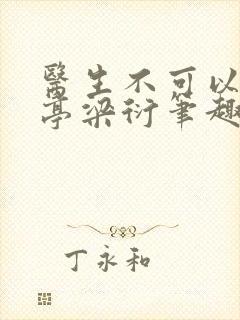 醫生不可以
亭梁衍筆趣
丁永和